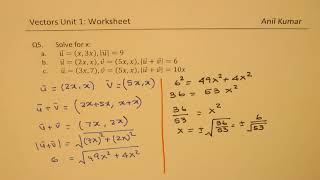 Vectors Unit 1: Worksheet
Anil Kumar
Q5. Solve for x:
a. u⃗ = (x, 3x), |u⃗| = 9
b. u⃗ = (2x, x), v⃗ = (5x, x), |u⃗ + v⃗| = 6
c. u⃗ = (3x, 7), v⃗ = (x, x), |u⃗ + v⃗| = 10x
u⃗ = (2x, x) v⃗ = (5x, x)
u⃗ + v⃗ = (2x+5x, x+x)
u⃗ + v⃗ = (7x, 2x)
|u⃗+v⃗| = √(7x)² + (2x)²
6 = √49x² + 4x²
6² = 49x² + 4x²
36 = 53 x²
36/53 = x²
x = ±√36/53 = ± 6/√53